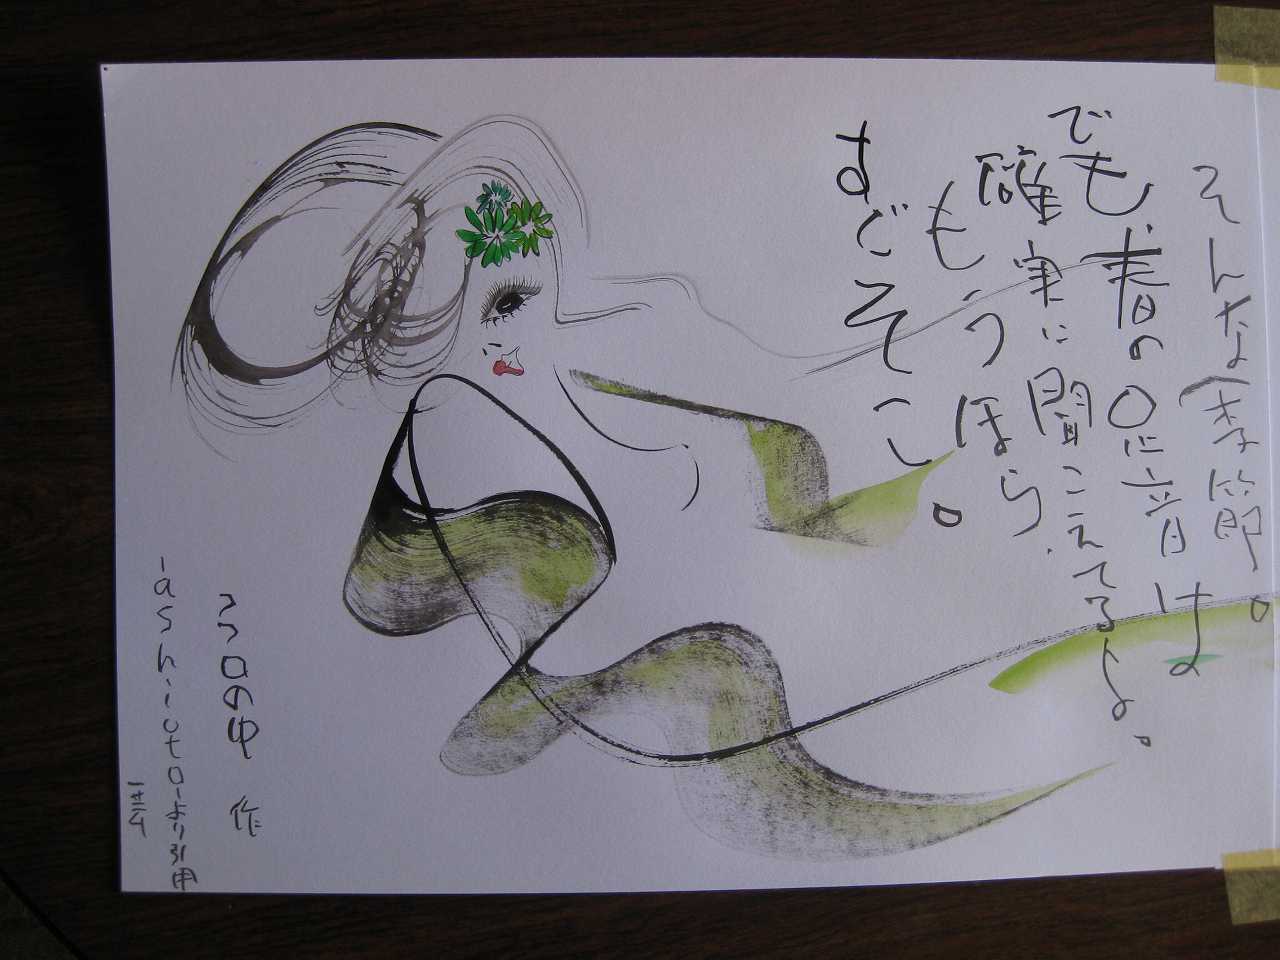 そんな季節。
でも、春の足音は
確実に聞こえてるよ。
もうほら、
すぐそこ。
うロの中 作
-ashiotoーより引用